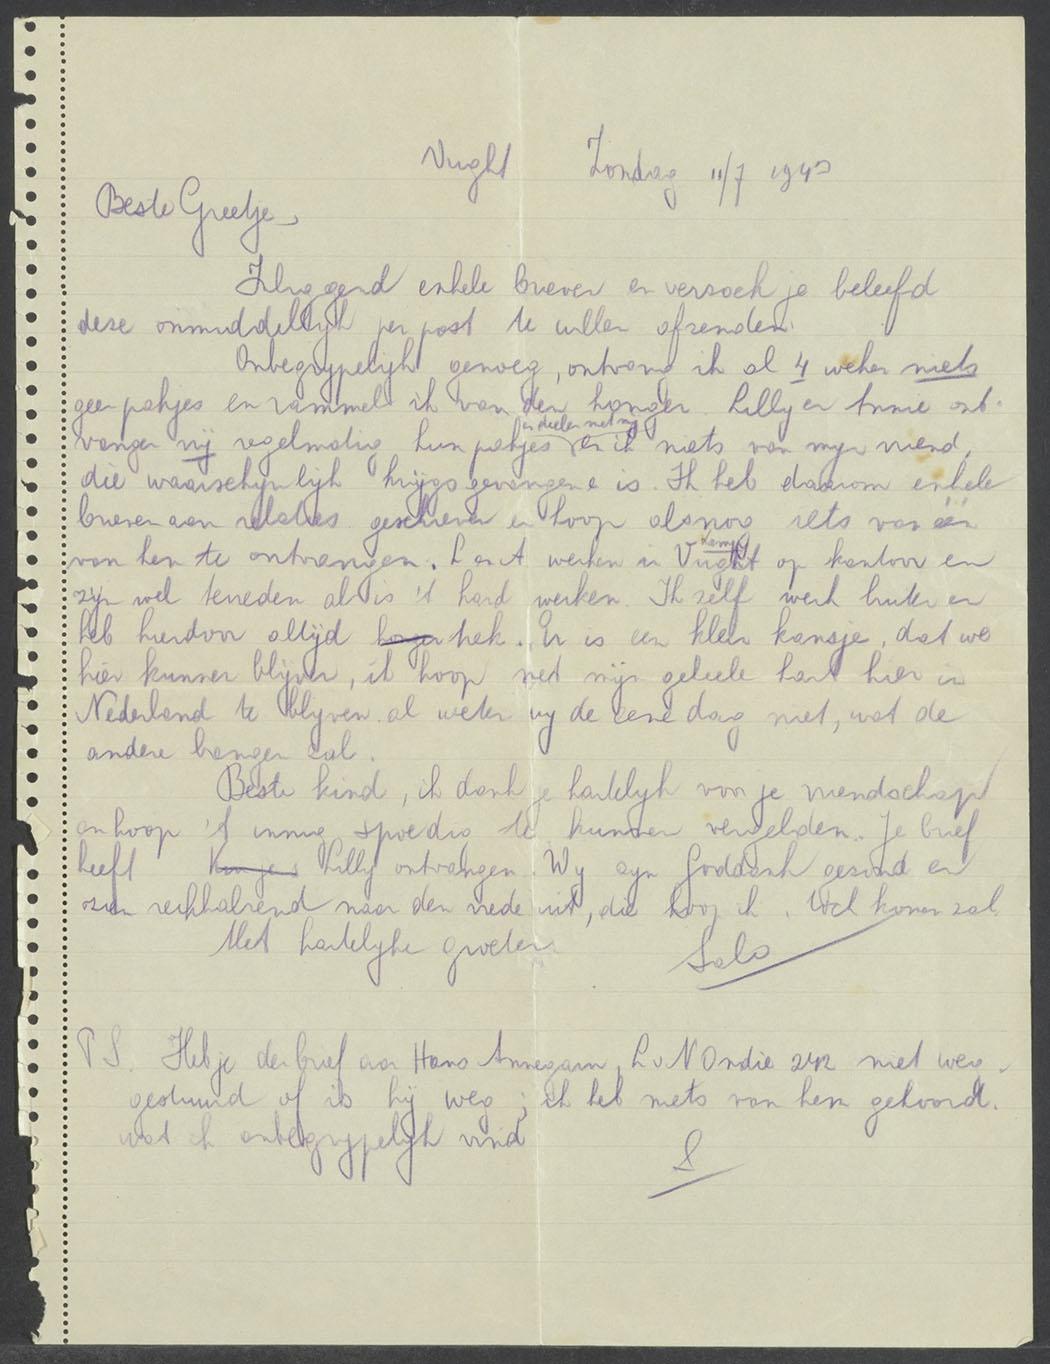 Vught Zondag 11/7 1943
Beste Greetje,
Inliggend enkele brieven en verzoek je beleefd
deze onmiddellijk per post te willen afzenden.
Onbegrijpelijk genoeg, ontvang ik al 4 weken niets
geen pakjes en rammel ik van den honger. Lilly en Annie ont-
vangen vrij regelmatig hun pakjes en deelen met mij en ik niets van mijn vriend,
die waarschijnlijk krijgsgevangene is. Ik heb daarom enkele
brieven aan relaties geschreven en hoop alsnog iets van één
van hen te ontvangen. L en A werken in Vught kamp op kantoor en
zijn wel tevreden al is 't hard werken. Ik zelf werk buiten en
heb hierdoor altijd trek. Er is een klein kansje, dat we
hier kunnen blijven, ik hoop met mijn geheele hart hier in
Nederland te blijven al weten wij de eene dag niet, wat de
andere brengen zal.
Beste kind, ik dank je hartelijk voor je vriendschap
en hoop 't innig spoedig te kunnen vergelden. Je brief
heeft Lilly ontvangen. Wij zijn Goddank gezond en
zien reikhalzend naar den vrede uit, die hoop ik komen zal
Met hartelijke groeten
Salo
P S. Heb je den brief aan Hans Annegarn, L v N Ondie 242 niet weg-
gestuurd of is hij weg; ik heb niets van hem gehoord.
wat ik onbegrijpelijk vind
S